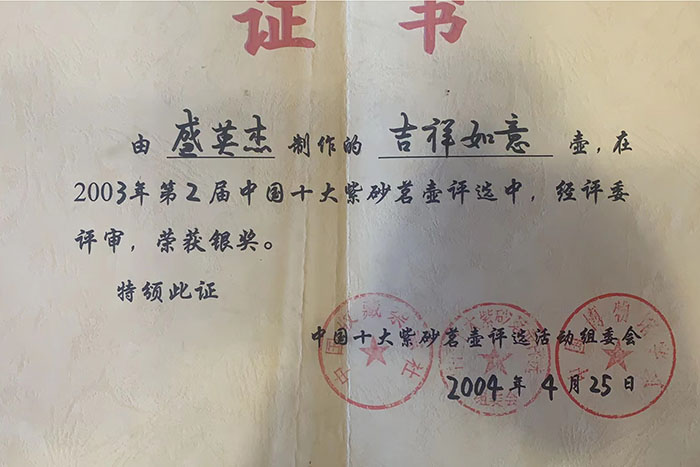 证书
由 盛英杰 制作的 吉祥如意 壶，在
2003年第2届中国十大紫砂茗壶评选中，经评委
评审，荣获银奖。
特颁此证
中国十大紫砂茗壶评选活动组委会
2004年4月25日